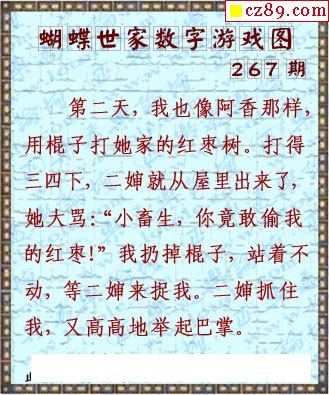 cz89.com
蝴蝶世家数字游戏图
267期
第二天，我也像阿香那样，
用棍子打她家的红枣树。打得
三四下，二婶就从屋里出来了，
她大骂：“小畜生，你竟敢偷我
的红枣！”我扔掉棍子，站着不
动，等二婶来捉我。二婶抓住
我，又高高地举起巴掌。